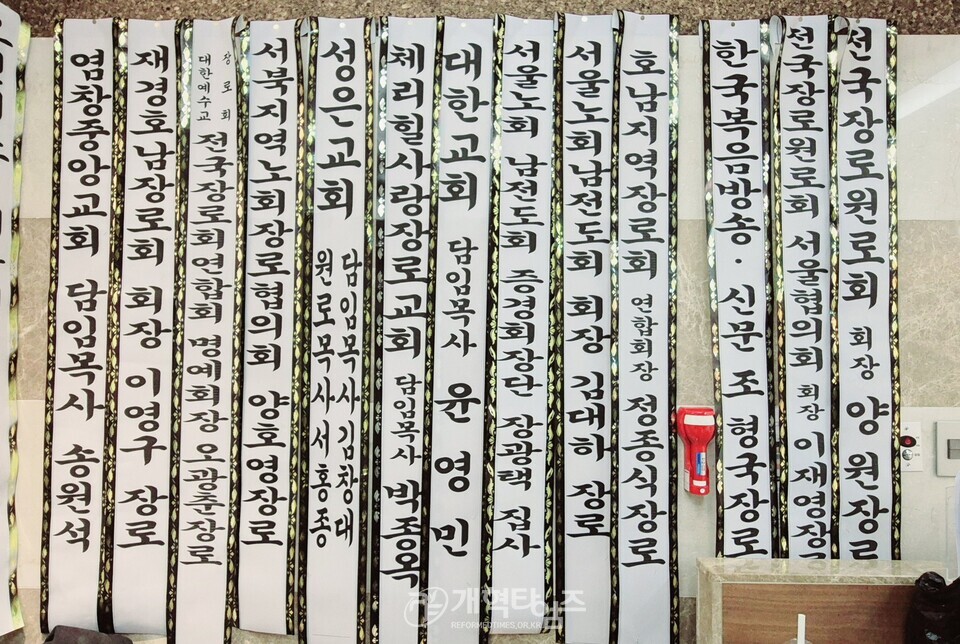 염창중앙교회 담임목사 송원석
재경호남장로회 회장 이영구 장로
대한예수교
장로회
전국장로회연합회 명예회장 오광춘장로
서북지역노회장로협의회 양호영장로
성은교회
담임목사 김창대
원로목사 서홍종
체리힐사랑장로교회 담임목사 박종옥
대한교회 담임목사 윤영민
서울노회 남전도회 증경회장단 장광택 집사
서울노회남전도회 회장 김대하 장로
호남지역장로회 연합회장 정종식장로
한국복음방송·신문 조 형국장로
전국장로원로회 서울협의회 회장 이재영장로
전국장로원로회 회장 양 원장로
개혁타임즈
REFORMEDTIMES.OR.KR